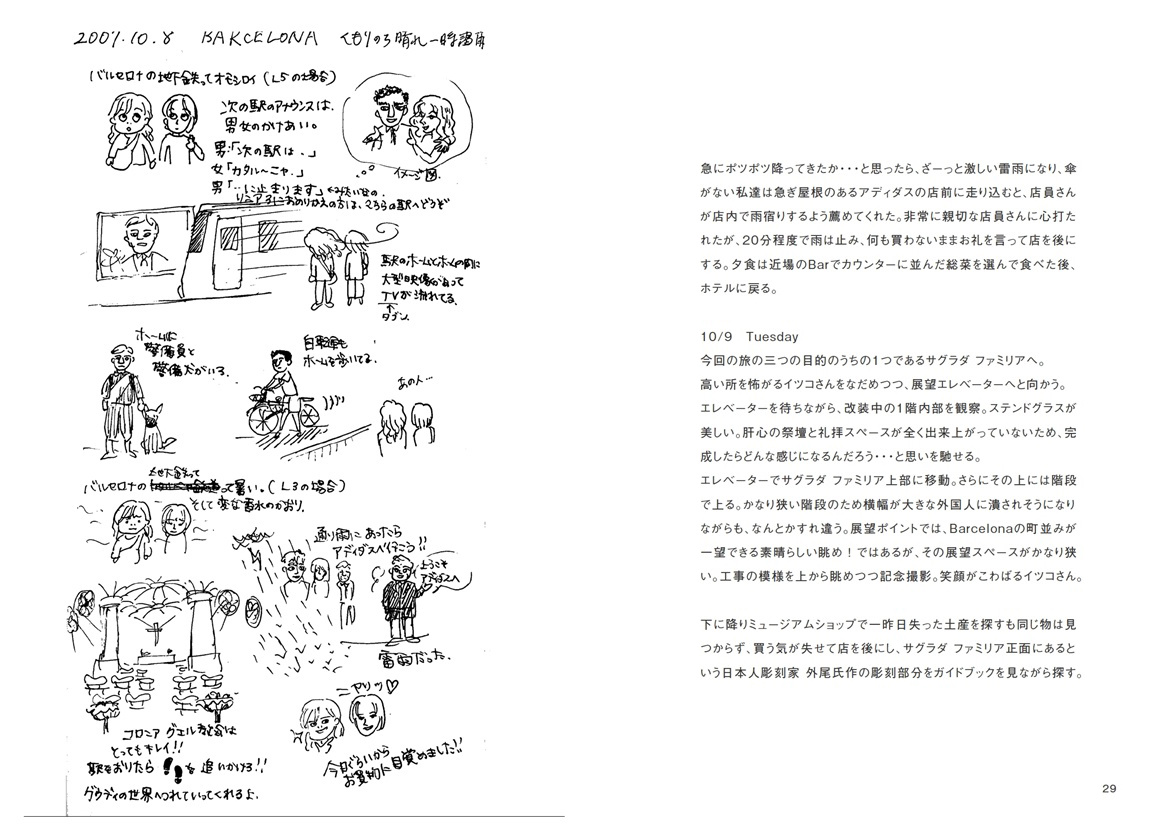 2007.10.8 BARCELONA くもりのち晴れ 一時雷雨
バルセロナの地下鉄ってオモシロイ(L5の場合)
次の駅のアナウンスは、
男女のかけあい。
男「次の駅は、」
女「カタル〜ニャ、」
男「…に止まります」←みたいな。
リニア3におのりかえの方は、こちらの駅へどうぞ
イメージ図。
駅のホームとホームの間に
大型映像があって
TVが流れてる。
↑
タブン。
ホームに
警備員と
警備犬がいる。
自転車も
ホームを歩いてる。
あの人…
バルセロナの地下鉄って暑い。(L3の場合)
そして変な香水のかおり。
通り雨にあったら
アディダスへ行こう!!
ようこそ
アディダスへ
雷雨だった。
ニヤリッ♡
今日ぐらいから
お買物に目覚めました!!
コロニア グエル教会は
とってもキレイ!!
駅をおりたら を追いかけろ!!
ガウディの世界へつれていってくれるよ。
急にポツポツ降ってきたか・・・と思ったら、ざーっと激しい雷雨になり、傘
がない私達は急ぎ屋根のあるアディダスの店前に走り込むと、店員さん
が店内で雨宿りするよう薦めてくれた。非常に親切な店員さんに心打た
れたが、20分程度で雨は止み、何も買わないままお礼を言って店を後に
する。夕食は近場のBarでカウンターに並んだ総菜を選んで食べた後、
ホテルに戻る。
10/9 Tuesday
今回の旅の三つの目的のうちの1つであるサグラダ ファミリアへ。
高い所を怖がるイツコさんをなだめつつ、展望エレベーターへと向かう。
エレベーターを待ちながら、改装中の1階内部を観察。ステンドグラスが
美しい。肝心の祭壇と礼拝スペースが全く出来上がっていないため、完
成したらどんな感じになるんだろう・・・と思いを馳せる。
エレベーターでサグラダ ファミリア上部に移動。さらにその上には階段
で上る。かなり狭い階段のため横幅が大きな外国人に潰されそうになり
ながらも、なんとかすれ違う。展望ポイントでは、Barcelonaの町並みが
一望できる素晴らしい眺め！ではあるが、その展望スペースがかなり狭
い。工事の模様を上から眺めつつ記念撮影。笑顔がこわばるイツコさん。
下に降りミュージアムショップで一昨日失った土産を探すも同じ物は見
つからず、買う気が失せて店を後にし、サグラダ ファミリア正面にあると
いう日本人彫刻家 外尾氏作の彫刻部分をガイドブックを見ながら探す。
29